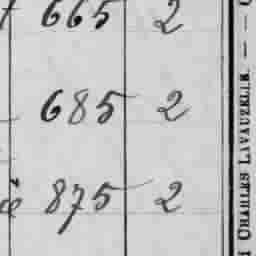 665 2
685 2
875 2
CHARLES LAVAUZELLE. — —